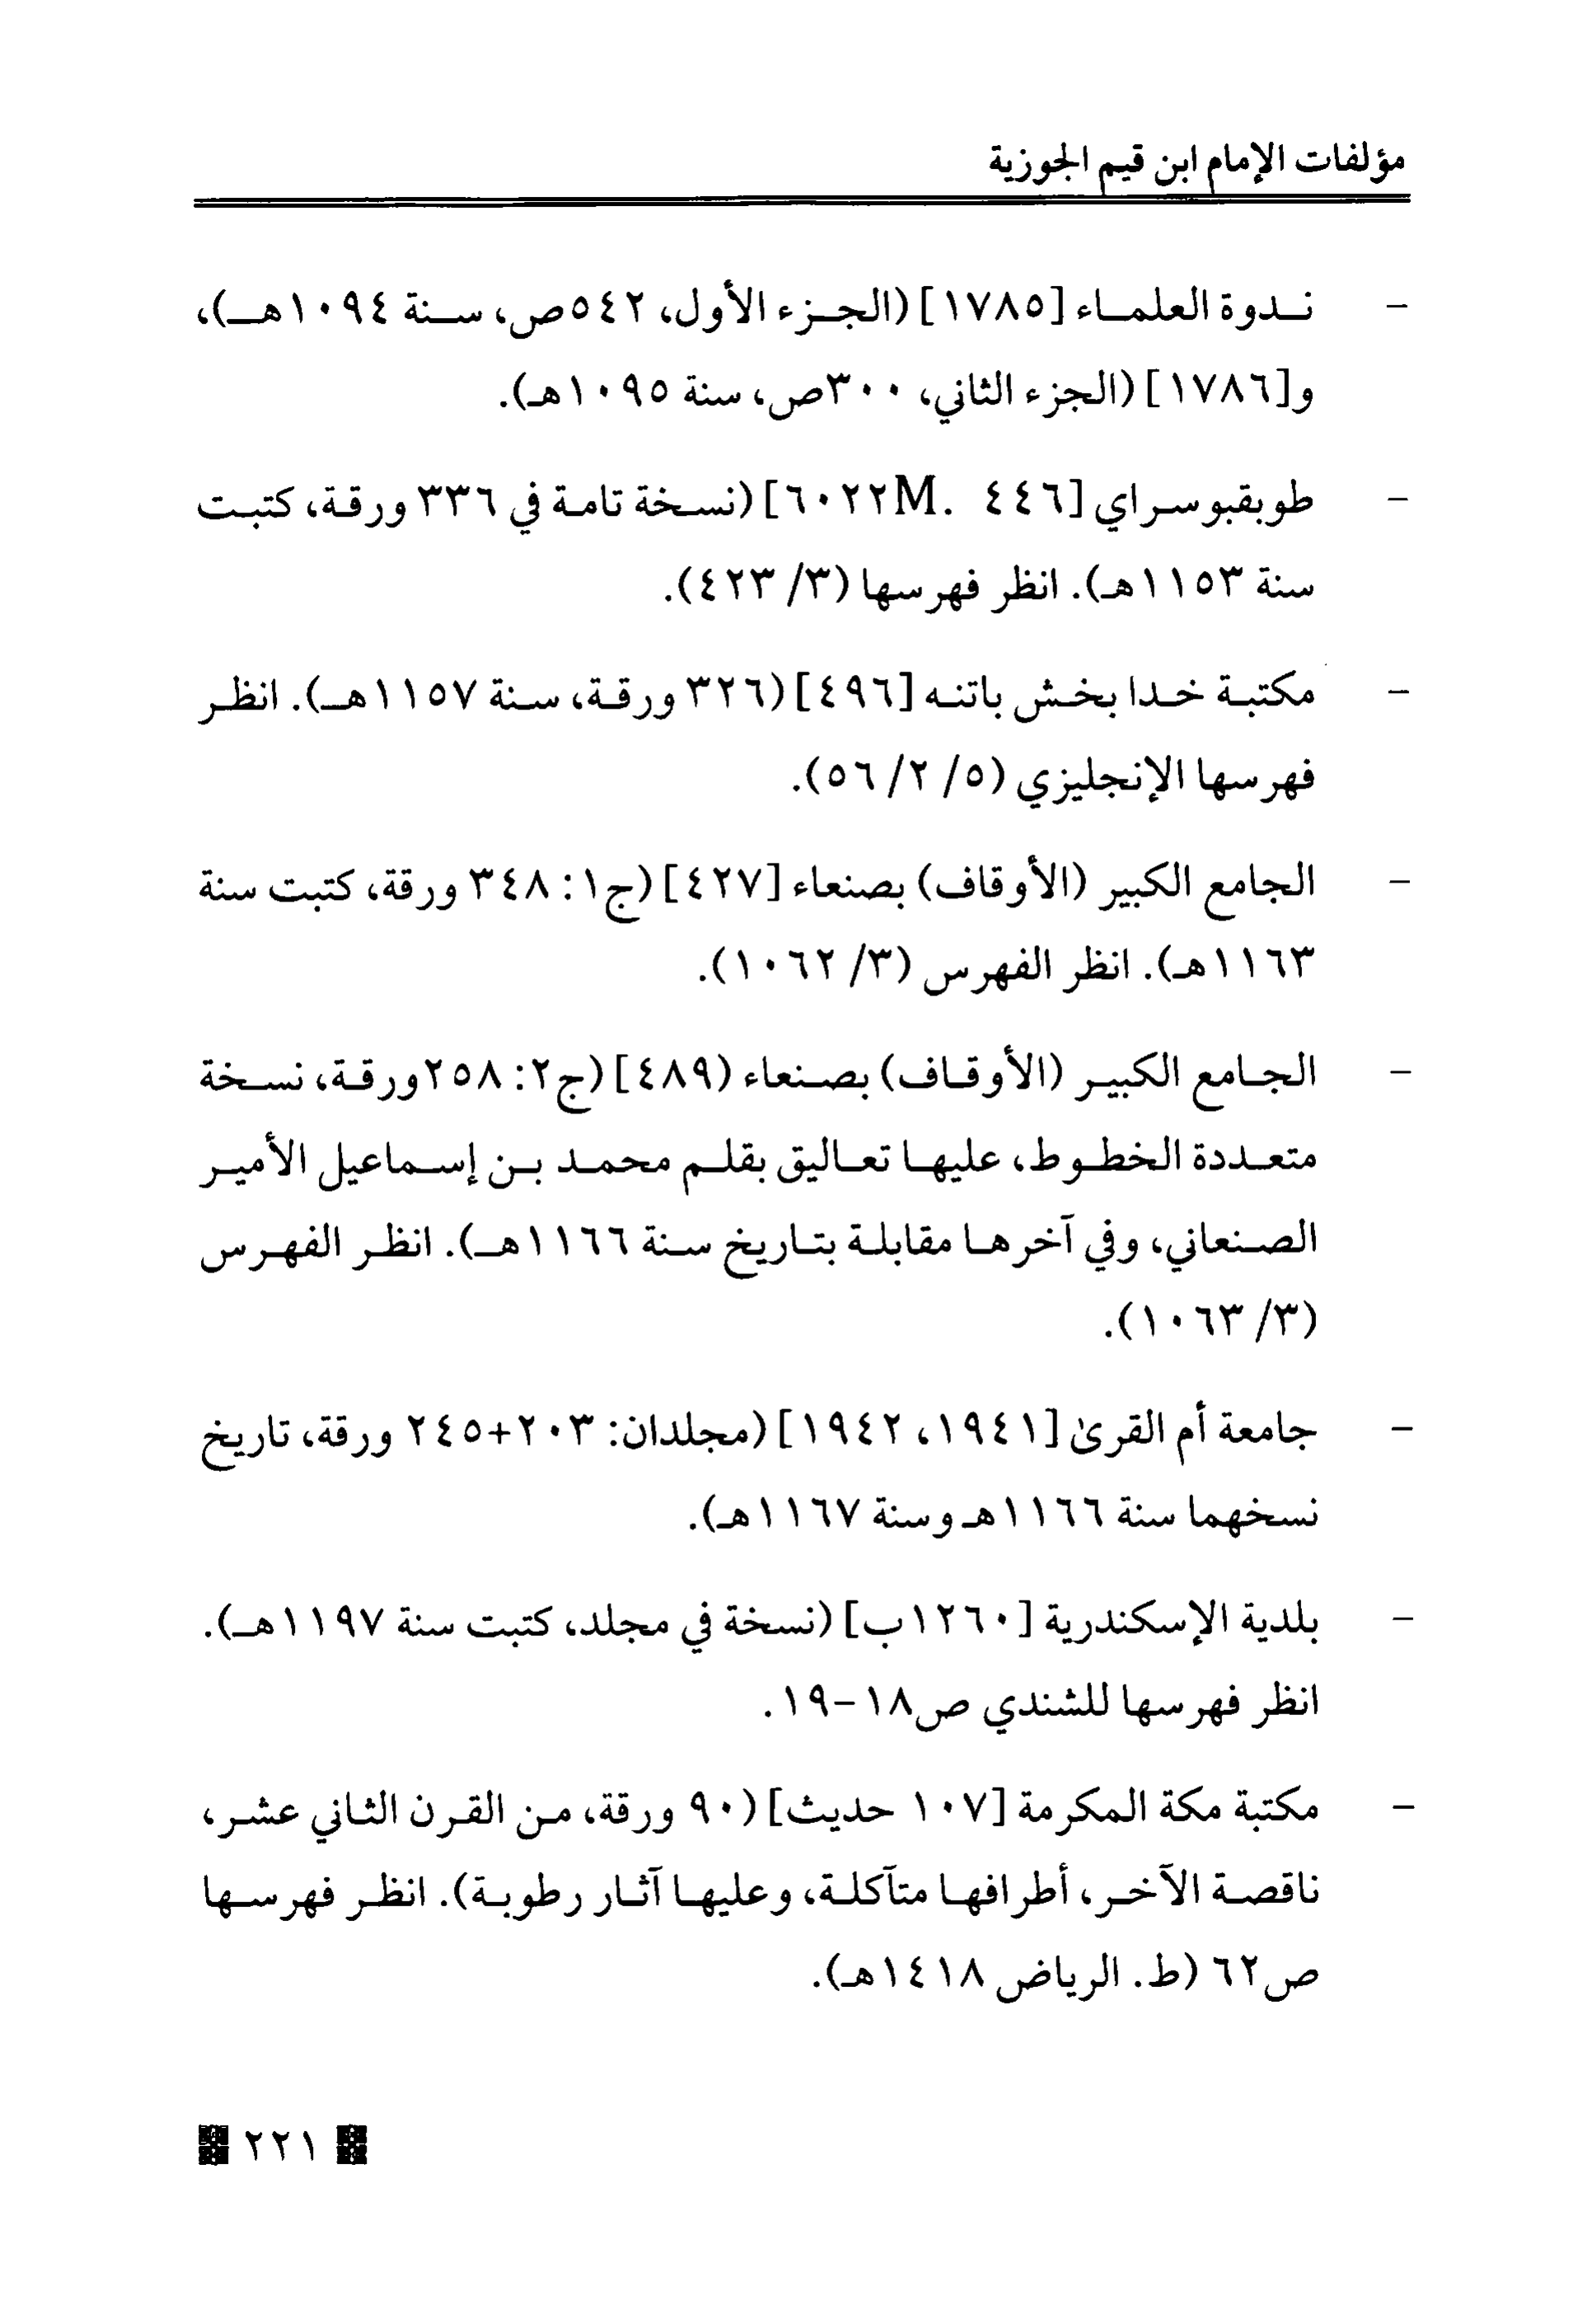 مؤلفات الإمام ابن قيم الجوزية
- ندوة العلماء [١٧٨٥] (الجزء الأول، ٥٤٢ص، سنة ١٠٩٤هـ)،
و[١٧٨٦] (الجزء الثاني، ٣٠٠ص، سنة ١٠٩٥هـ).
- طوبقبوسراي [٤٤٦ .٦٠٢٢M] (نسخة تامة في ٣٣٦ ورقة، كتبت
سنة ١١٥٣هـ). انظر فهرسها (٣/ ٤٢٣).
- مكتبة خدا بخش باتنه [٤٩٦] (٣٢٦ ورقة، سنة ١١٥٧هـ). انظر
فهرسها الإنجليزي (٥/ ٢/ ٥٦).
- الجامع الكبير (الأوقاف) بصنعاء [٤٢٧] (ج١: ٣٤٨ ورقة، كتبت سنة
١١٦٣هـ). انظر الفهرس (٣/ ١٠٦٢).
- الجامع الكبير (الأوقاف) بصنعاء (٤٨٩] (ج٢: ٢٥٨ورقة، نسخة
متعددة الخطوط، عليها تعاليق بقلم محمد بن إسماعيل الأمير
الصنعاني، وفي آخرها مقابلة بتاريخ سنة ١١٦٦هـ). انظر الفهرس
(٣/ ١٠٦٣).
- جامعة أم القرىٰ [١٩٤١، ١٩٤٢] (مجلدان: ٢٠٣+٢٤٥ ورقة، تاريخ
نسخهما سنة ١١٦٦هـ وسنة ١١٦٧هـ).
- بلدية الإسكندرية [١٢٦٠ب] (نسخة في مجلد، كتبت سنة ١١٩٧هـ).
انظر فهرسها للشندي ص١٨-١٩.
- مكتبة مكة المكرمة [١٠٧ حديث] (٩٠ ورقة، من القرن الثاني عشر،
ناقصة الآخر، أطرافها متآكلة، وعليها آثار رطوبة). انظر فهرسها
ص٦٢ (ط. الرياض ١٤١٨هـ).
٢٢١